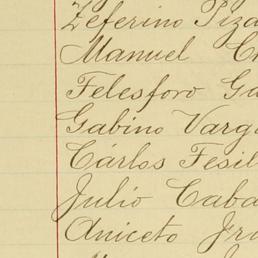 Zeferino Piza
Manuel C
Felesforo Ga
Gabino Varga
Cárlos Fesil
Julio Caba
Aniceto